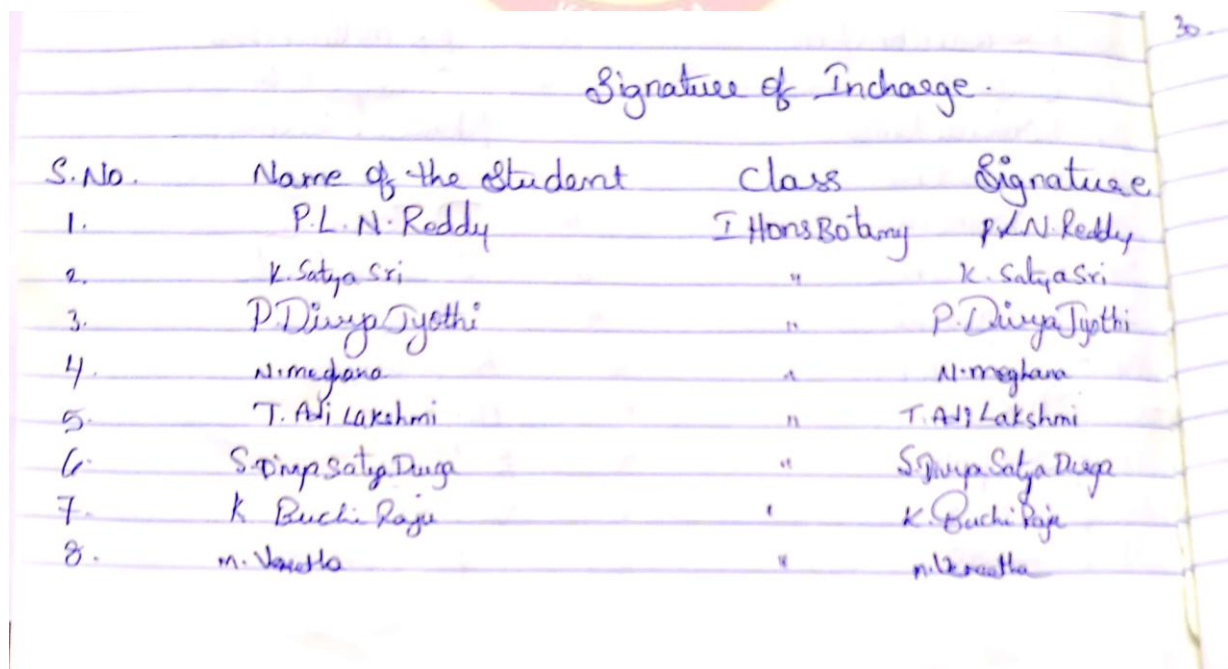 30
Signature of Incharge.
S.No. Name of the Student Class Signature
1. P.L.N.Reddy I Hons Botany P.L.N.Reddy
2. K.Satya Sri " K.Satya Sri
3. P.Divya Jyothi " P.Divya Jyothi
4. N.meghana " N.meghana
5. T.Adi Lakshmi " T.Adi Lakshmi
6. S.Divya Satya Durga " S.Divya Satya Durga
7. K Buchi Raju " K.Buchi Raju
8. m. " m.